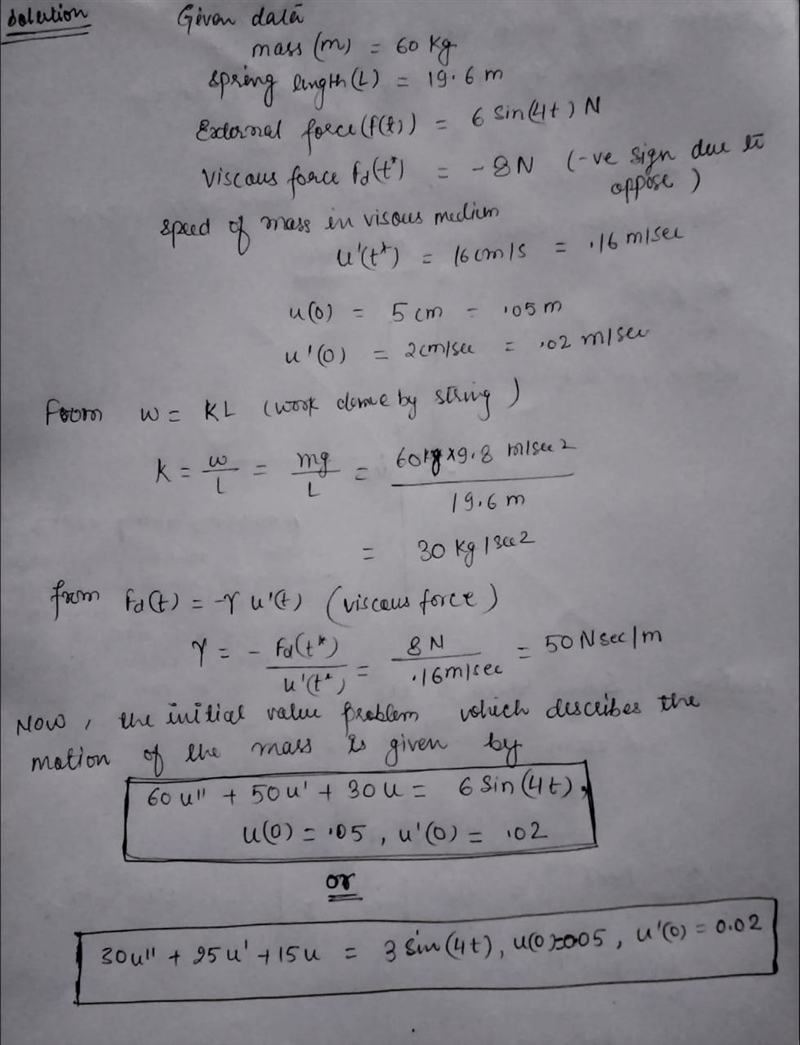 Solution
Given data
mass (m) = 60 kg
Spring length (L) = 19.6 m
External force (f(t)) = 6 sin(4t) N
Viscous force Fd(t*) = -8N (-ve sign due to oppose)
speed of mass in visous medium
u'(t*) = 16 cm/s = .16 m/sec
u(0) = 5 cm = .05 m
u'(0) = 2cm/sec = .02 m/sec
From w = KL (work done by string)
K = w/L = mg/L = 60kg x 9.8 m/sec2 / 19.6 m
= 30 kg/sec2
from Fd(t) = -γ u'(t) (viscous force)
γ = - Fd(t*)/u'(t*) = 8 N/.16 m/sec = 50 N sec/m
Now, the initial value problem which describes the
motion of the mass is given by
60 u'' + 50 u' + 30 u = 6 Sin(4t),
u(0) = .05, u'(0) = .02
or
30u'' + 25u' + 15u = 3 Sin(4t), u(0)=0.05, u'(0) = 0.02